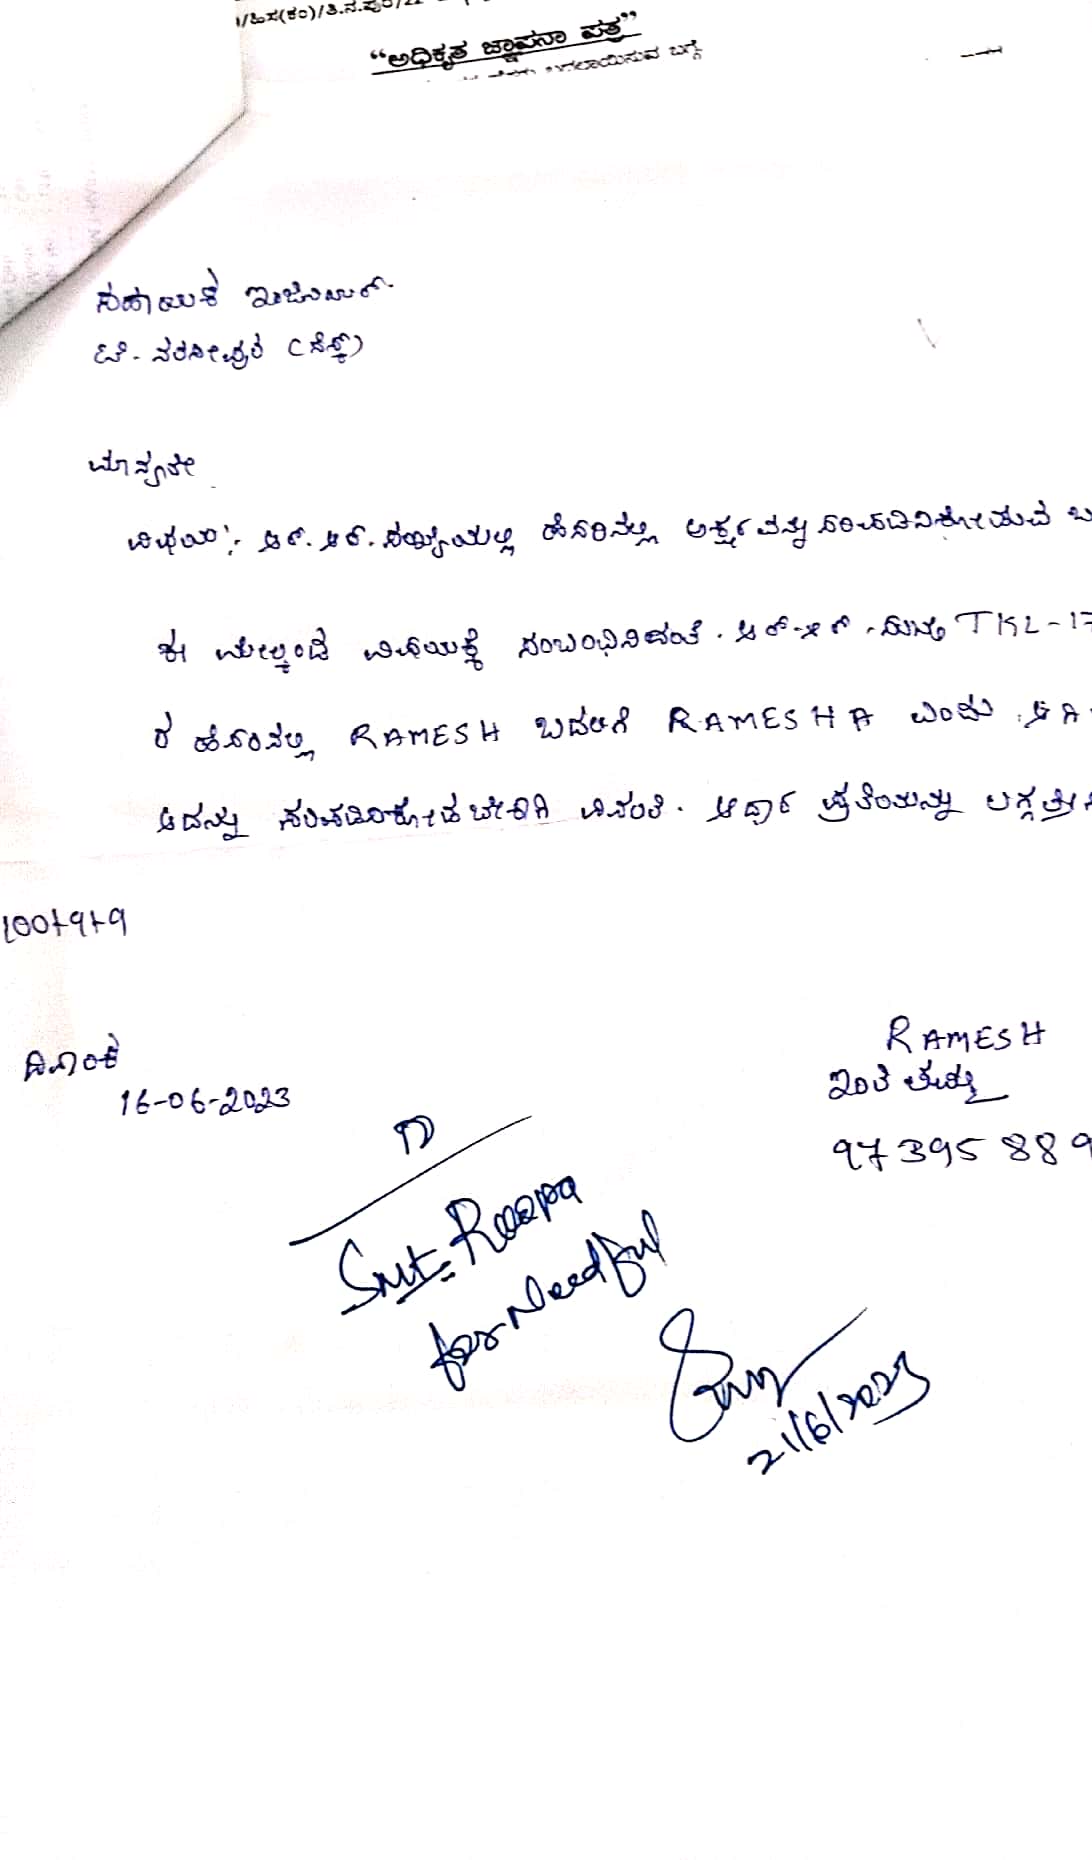 /ಹಿಸ(ಕಂ)/ತಿ.ನ.ಪುರ/22
“ಅಧಿಕೃತ ಜ್ಞಾಪನಾ ಪತ್ರ”
ಬದಲಾಯಿಸುವ ಬಗ್ಗೆ
ಸಹಾಯಕ ಇಂಜಿನಿಯರ್
ಟಿ. ನರಸೀಪುರ (ಸೆಸ್ಕ್)
ಮಾನ್ಯರೇ
ವಿಷಯ: ಆರ್. ಆರ್. ಸಂಖ್ಯೆಯಲ್ಲಿ ಹೆಸರಿನಲ್ಲಿ ಅರ್ಕ್ಷರವನ್ನು ಸರಿಪಡಿಸಿಕೋಡುವ ಬ
ಈ ಮೇಲ್ಕಂಡ ವಿಷಯಕ್ಕೆ ಸಂಬಂಧಿಸಿದಂತೆ. ಆರ್. ಆರ್. TKL-17
ರ ಹೆಸರಿನಲ್ಲಿ RAMESH ಬದಲಿಗೆ RAMESHA ಎಂದು ಆಗಿ
ಅದನ್ನು ಸರಿಪಡಿಸಿಕೋಡಬೇಕಾಗಿ ವಿನಂತಿ. ಆಧಾರ ಪ್ರತಿಯನ್ನು ಲಗ್ಗತ್ತೀಸಿ
1007979
ದಿನಾಂಕ
16-06-2023
RAMESH
ಇಂತಿ
97395 889
Smt. Roopa
for Needful
21/6/2023